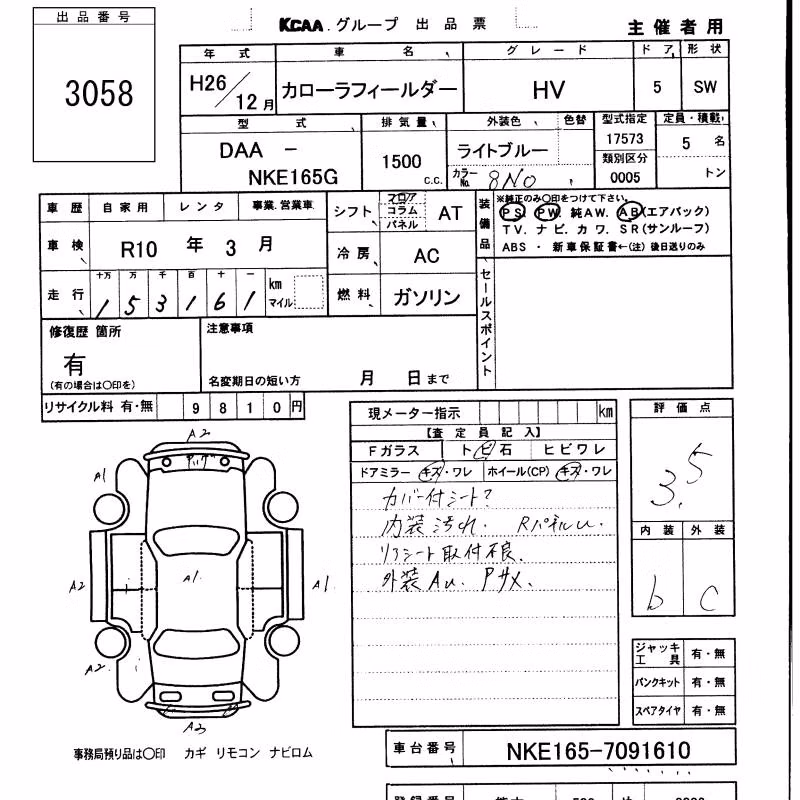 出品番号
3058
KCAA グループ 出品票
主催者用
年式 車名 グレード ドア 形状
H26/12月 カローラフィールダー HV 5 SW
型式 排気量 外装色 色替 型式指定 定員・積載
DAA － NKE165G 1500 c.c. ライトブルー 17573 5 名
カラーNo. 8N0 類別区分 0005 トン
車歴 自家用 レンタ 事業.営業車
シフト フロア コラム パネル AT
車検 R10 年 3 月
冷房 AC
走行 十万 万 千 百 十 一 km マイル
1 5 3 1 6 1
燃料 ガソリン
装備品
※純正のみ〇印をつけて下さい。
PS. PW. 純AW. AB(エアバック)
TV. ナビ. カワ. SR(サンルーフ)
ABS ・ 新車保証書←(注) 後日送りのみ
セールスポイント
修復歴 箇所
有
(有の場合は〇印を)
注意事項
名変期日の短い方 月 日まで
リサイクル料 有・無 9810円
現メーター指示 km
【査定員記入】
Fガラス トビ石 ヒビワレ
ドアミラー キズ・ワレ ホイール(CP) キズ・ワレ
カバー付シート?
内装汚れ. Rパネルu.
リアシート取付不良.
外装Au. Pサメ.
評価点
3.5
内装 外装
b C
A2
A1
A2
A1.
A1.
A2.
A3
ジャッキ工具 有・無
パンクキット 有・無
スペアタイヤ 有・無
事務局預り品は〇印 カギ リモコン ナビロム
車台番号 NKE165-7091610